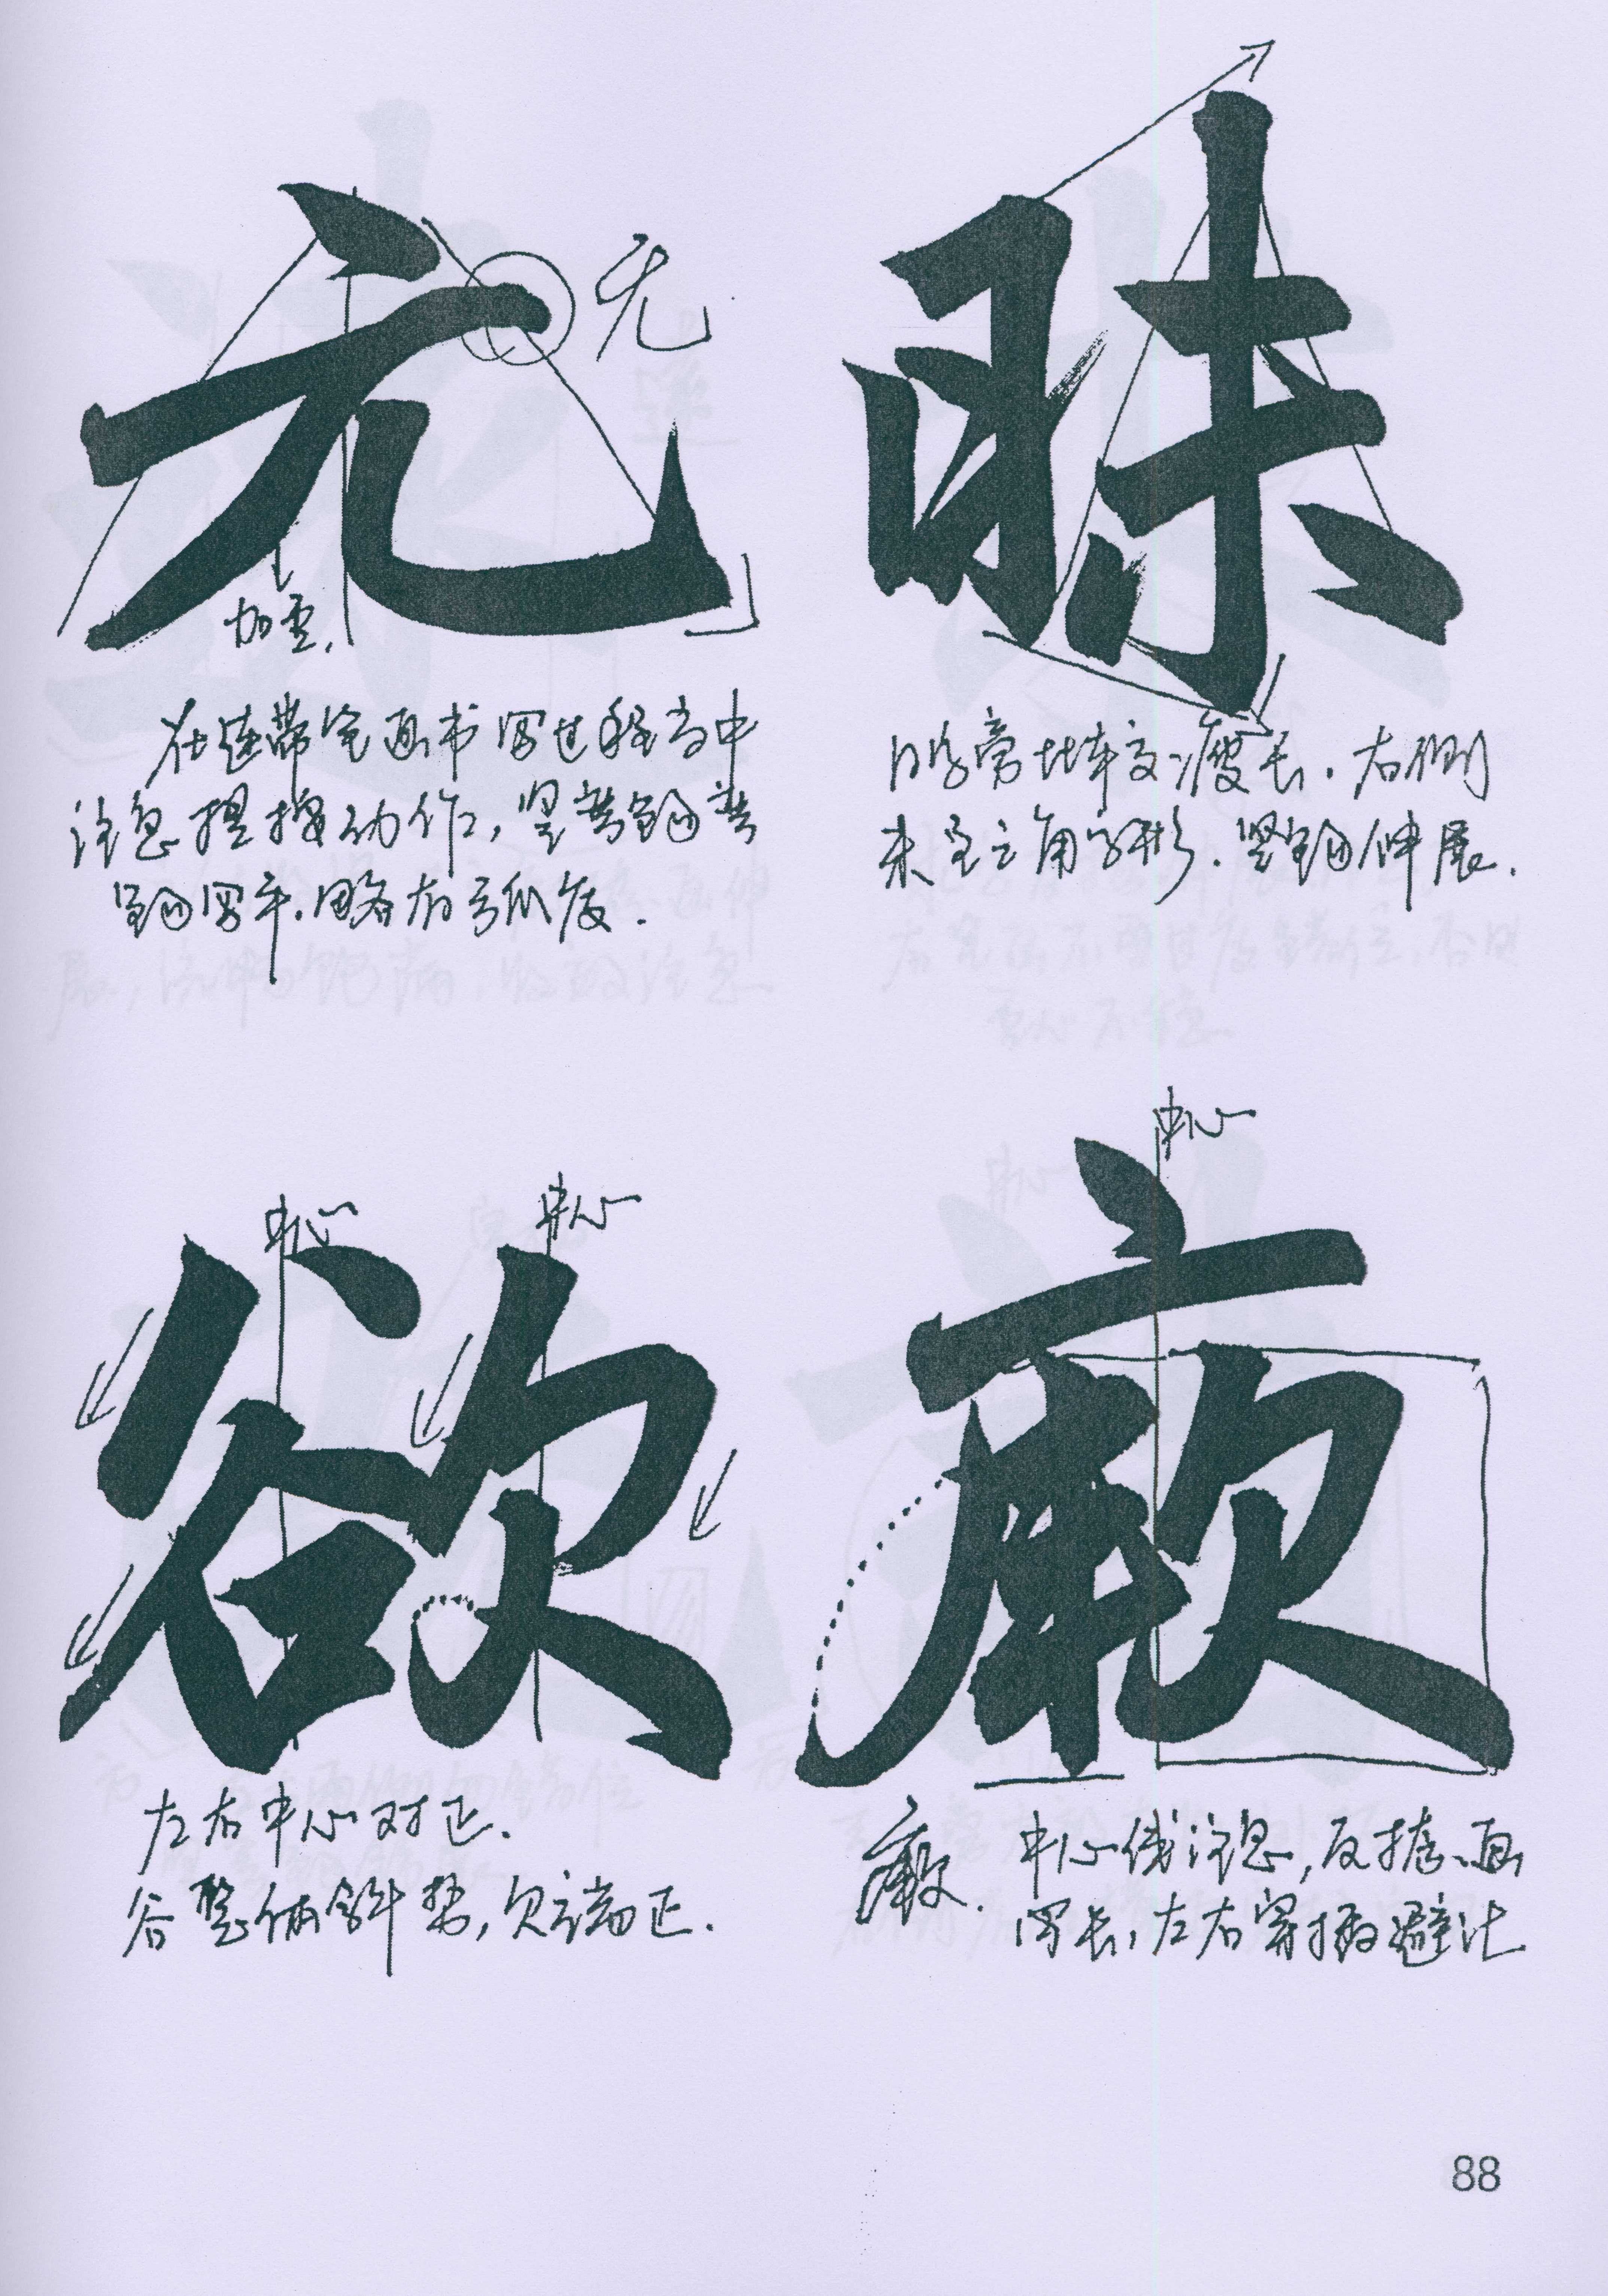 元
无
加重.
在连带笔画书写过程当中
注意提按动作,竖弯钩弯
钩写平.略有弧度.
昧
日字旁比较瘦长.右侧
未呈三角字形.竖钩伸展.
欲
中心
中心
左右中心对正.
谷整体斜势,欠端正.
厥
中心
厥. 中心线注意,反捺、画
写长,左右穿插避让
88